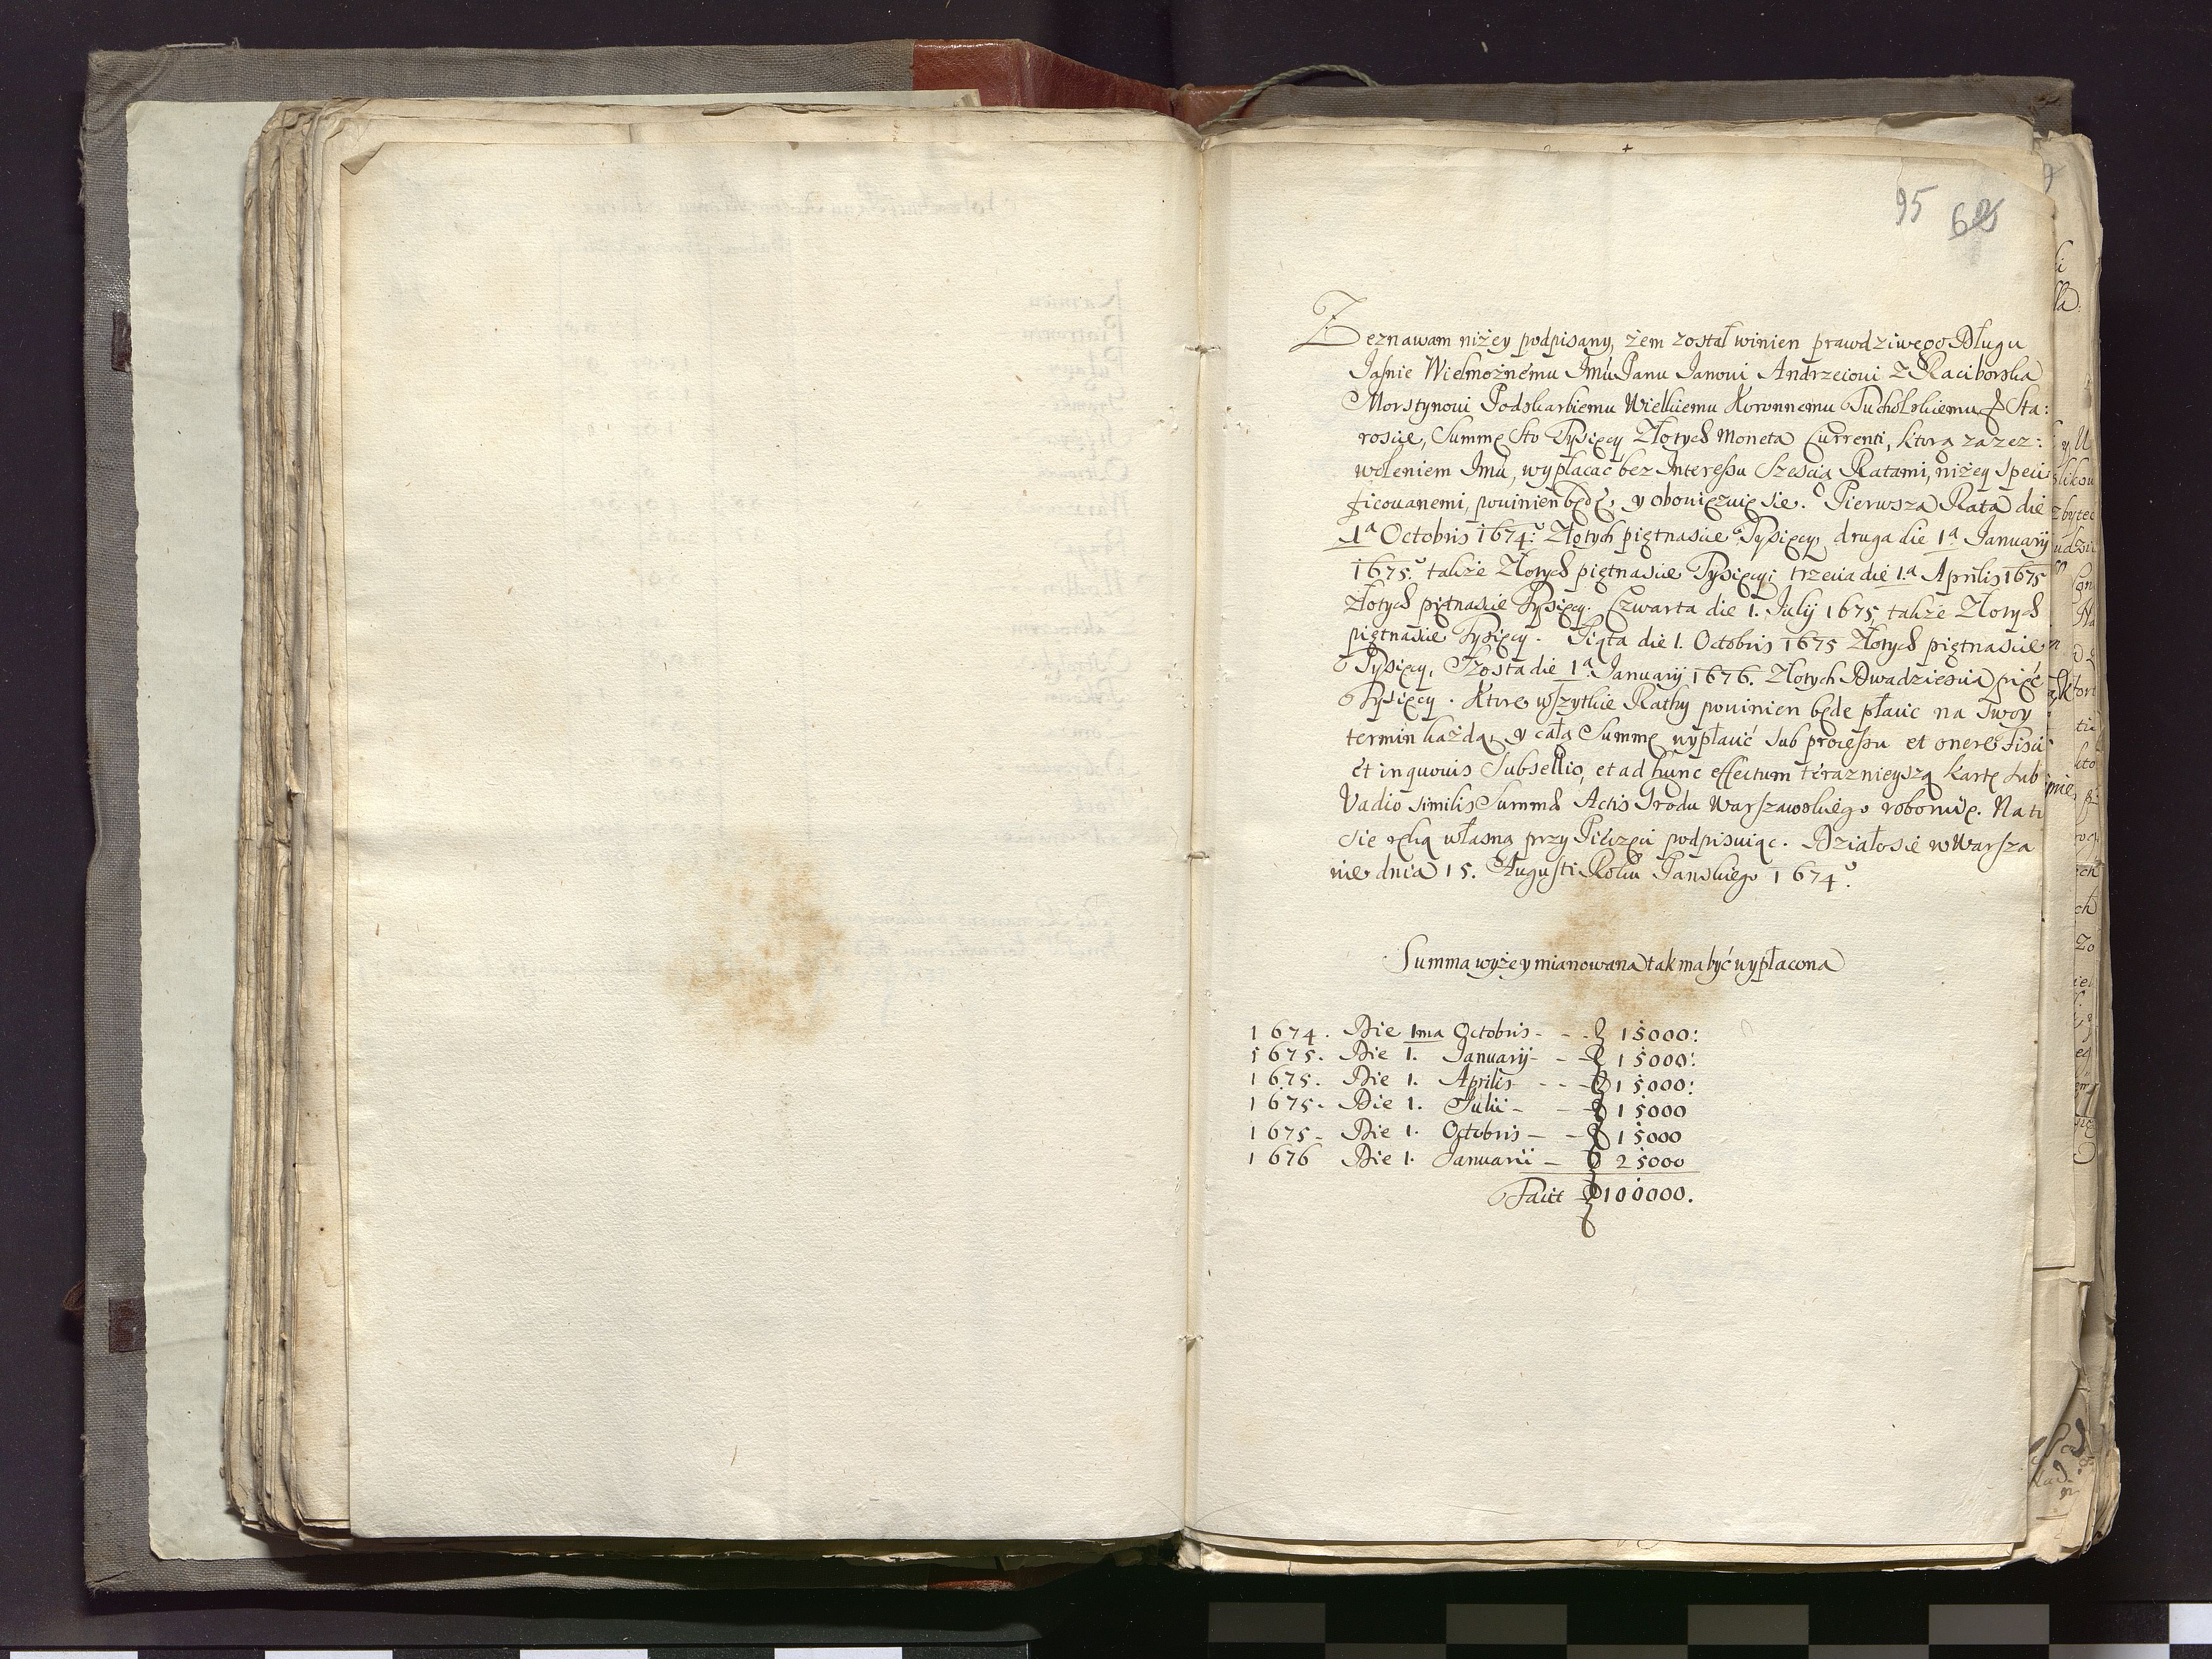 95 62
Zeznawam niżey podpisany, żem został winien prawdziwego Długu
Jaśnie Wielmożnému Jmú Panu Janowi Andrzeiowi z Raciborska
Morstynowi Podskarbiemu Wielkiemu Koronnemu Tucholskiemu Sta:
rośćie, Summę sto Tysięcy Złotych Moneta Currenti, ktorą za zez:
woleniem Jmú, wypłacać bez Interessu Sześcią Ratami, niżey speci
ficowanemi, powinien będę, y obowięzuię sie. Pierwsza Rata die
1ª Octobris 1674. Złotych piętnaście Tysięcy, druga die 1ª January
1675. także Złotych piętnaście Tysięcy; trzecia die 1.ª Aprilis 1675
złotych piętnaście Tysięcy. Czwarta die 1. Julij 1675, także Złotych
piętnaście Tysięcy. Piąta die 1. Octobris 1675 Złotych piętnaście
Tysięcy, Szosta die 1ª January 1676. Złotych Dwadzieścia pięć
Tysięcy. Ktore wszytkie Rathy powinien będe płacic na swoy
termin każdą, y całą Summę wypłacić sub processu et onere Fisci
et in quovis Subsellio, et ad hunc effectum terazniejszą kartę sub
Vadio similis Summæ Actis Grodu Warszawskiego roboruię. Na to
sie ręką własną przy Pieczęci podpisuiąc. Działo sie w Warsza
wie dnia 15. Augusti Roku Panskiego 1674.
Summa wyżey mianowana tak ma być wypłacona
1674. Die 1ma Octobris - - 15000:
1675. Die 1. January - - 15000:
1675. Die 1. Aprilis - - 15000:
1675. Die 1. Julii - - 15000
1675 - Die 1. Octobris - - 15000
1676 Die 1. Januarii - 25000
Facit 100000.